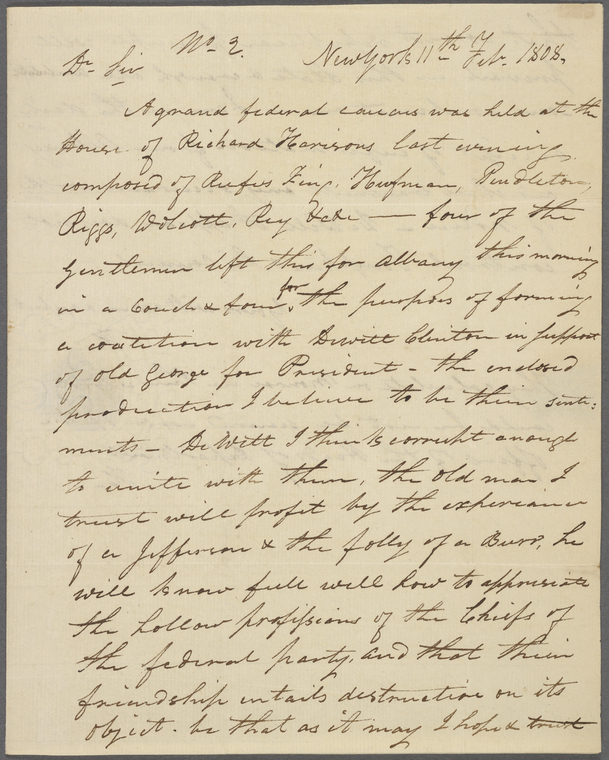 No. 2.
New York 11th Feby. 1808.
Dr Sir
A grand federal caucus was held at the
House of Richard Harisons last evening
composed of Rufus King, Hofman, Pendleton,
Riggs, Wolcott, Ray &c&c — four of the
Gentlemen left this for Albany this morning
in a Coach & four for the purposes of forming
a coatition with Dewitt Clinton in support
of old George for President - the enclosed
production I believe to be their senti=
ments - De Witt I think is corrupt anough
to unite with them, the old man I
trust will profit by the experiance
of a Jefferson & the folly of a Burr, he
will know full well how to appresiate
the hollow professions of the Chiefs of
the federal party, and that their
friendship intails destructive on its
object. be that as it may I hope & trust